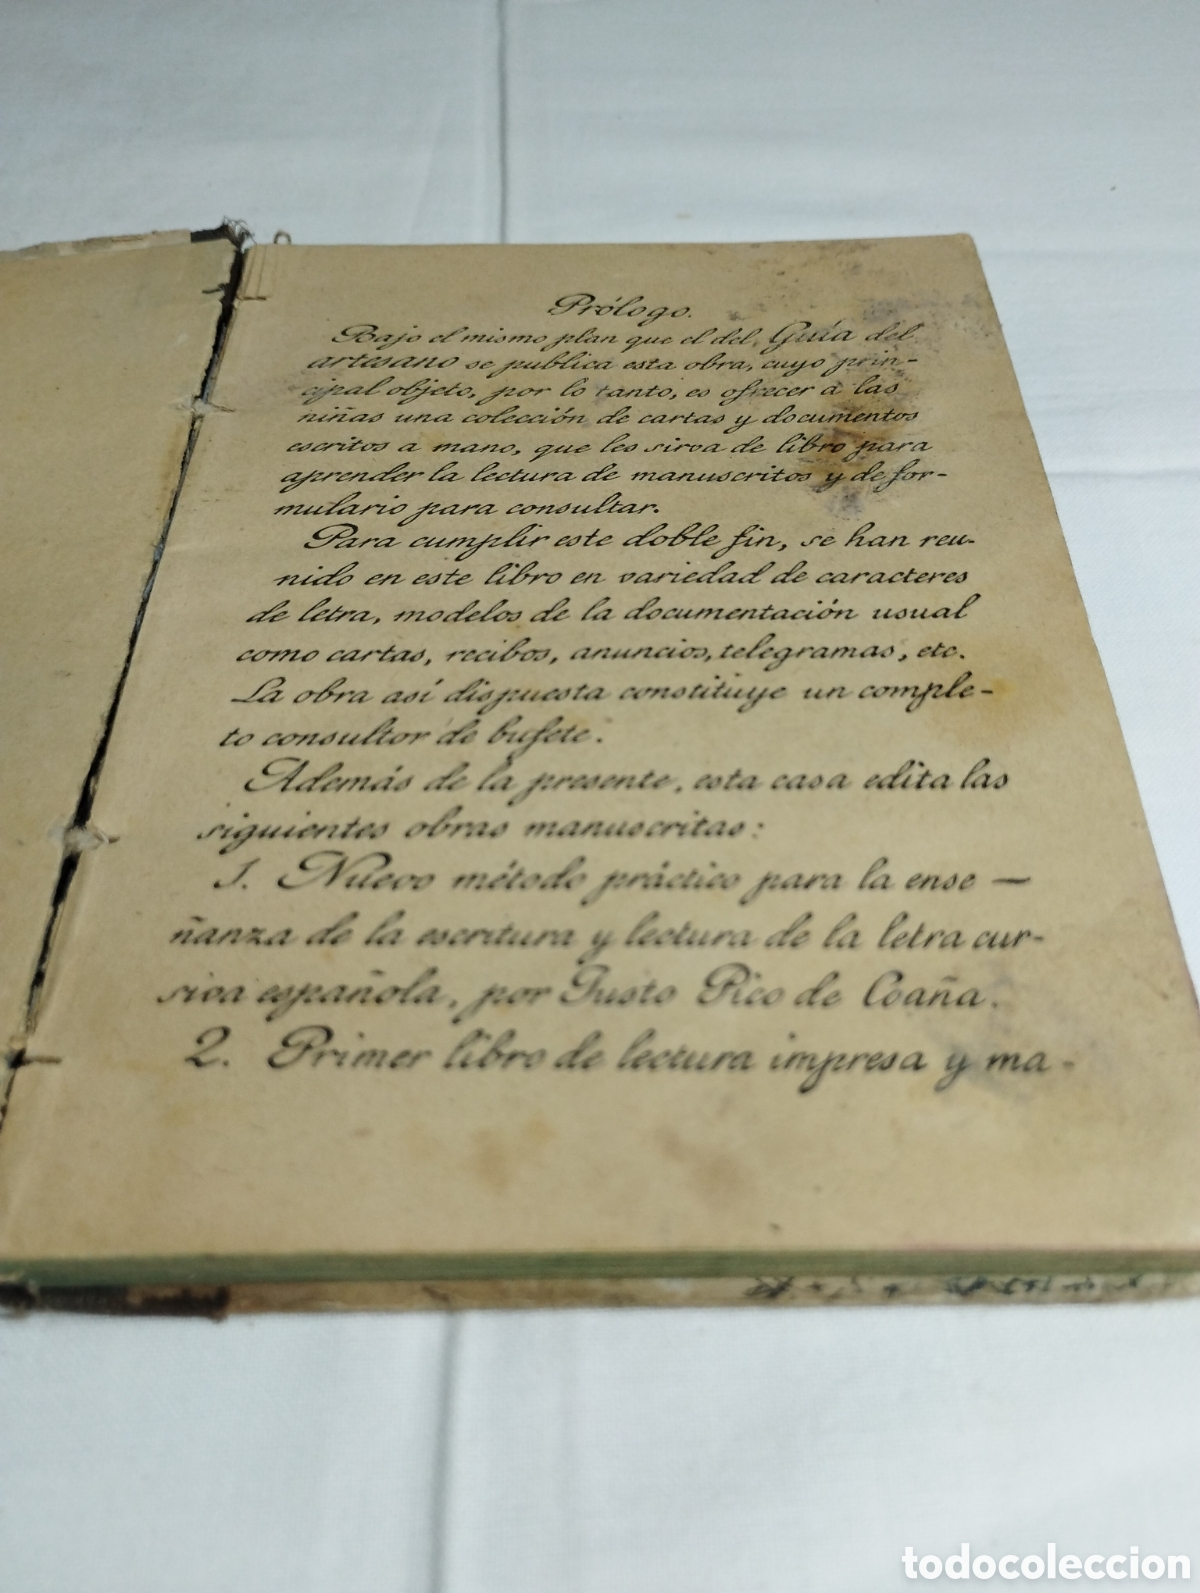 Prólogo.
Bajo el mismo plan que el del Guía del
artesano se publica esta obra, cuyo prin-
cipal objeto, por lo tanto, es ofrecer a las
niñas una colección de cartas y documentos
escritos a mano, que les sirva de libro para
aprender la lectura de manuscritos y de for-
mulario para consultar.
Para cumplir este doble fin, se han reu-
nido en este libro en variedad de caracteres
de letra, modelos de la documentación usual
como cartas, recibos, anuncios, telegramas, etc.
La obra así dispuesta constituye un comple-
to consultor de bufete.
Además de la presente, esta casa edita las
siguientes obras manuscritas:
1. Nuevo método práctico para la ense-
ñanza de la escritura y lectura de la letra cur-
siva española, por Justo Pico de Coaña.
2. Primer libro de lectura impresa y ma-
todocoleccion